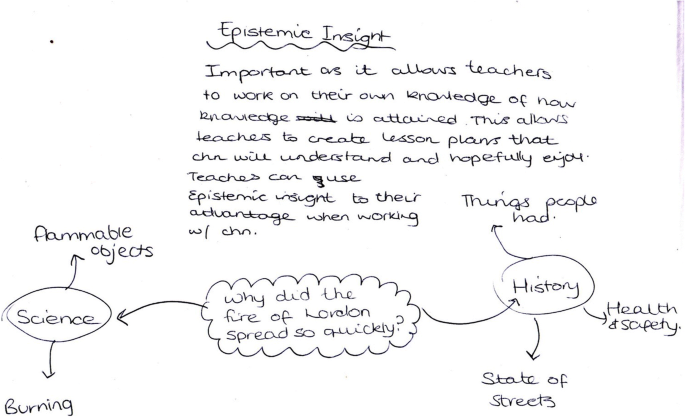 Epistemic Insight
Important as it allows teachers
to work on their own knowledge of how
knowledge is attained. This allows
teachers to create lesson plans that
chn will understand and hopefully enjoy.
Teaches can use
Epistemic insight to their
advantage when working
w/ chn.
Things people
had.
flammable
objects
Why did the
fire of London
spread so quickly?
History
Science
Health
& safety.
State of
Streets
Burning